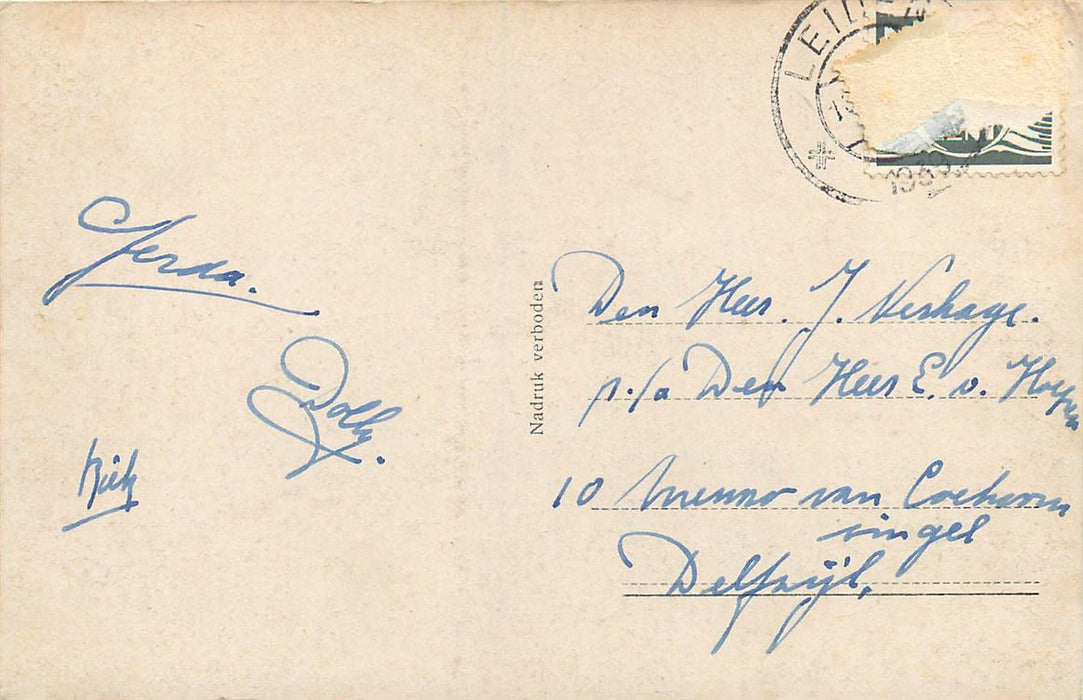 LEIDEN
1
Gerda.
Dolly.
Nadruk verboden
Den Heer. J. Verhage.
p./a Den Heer E. v.
10 Menno van Coehoorn
singel
Delfzijl,